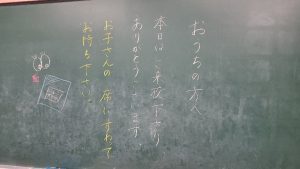 おうちの方へ
本日はご来校下さり
ありがとうございます。
お子さんの席にすわって
お待ち下さい。